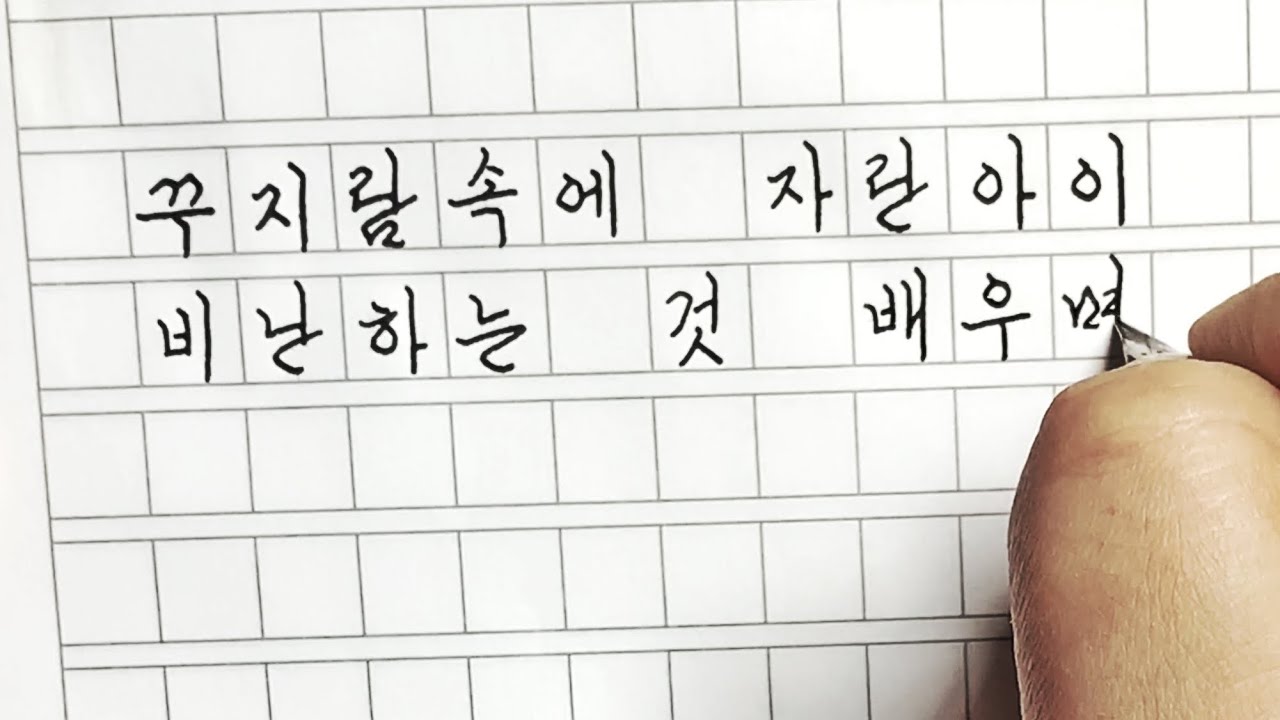 꾸지람속에 자란아이
비난하는 것 배우며